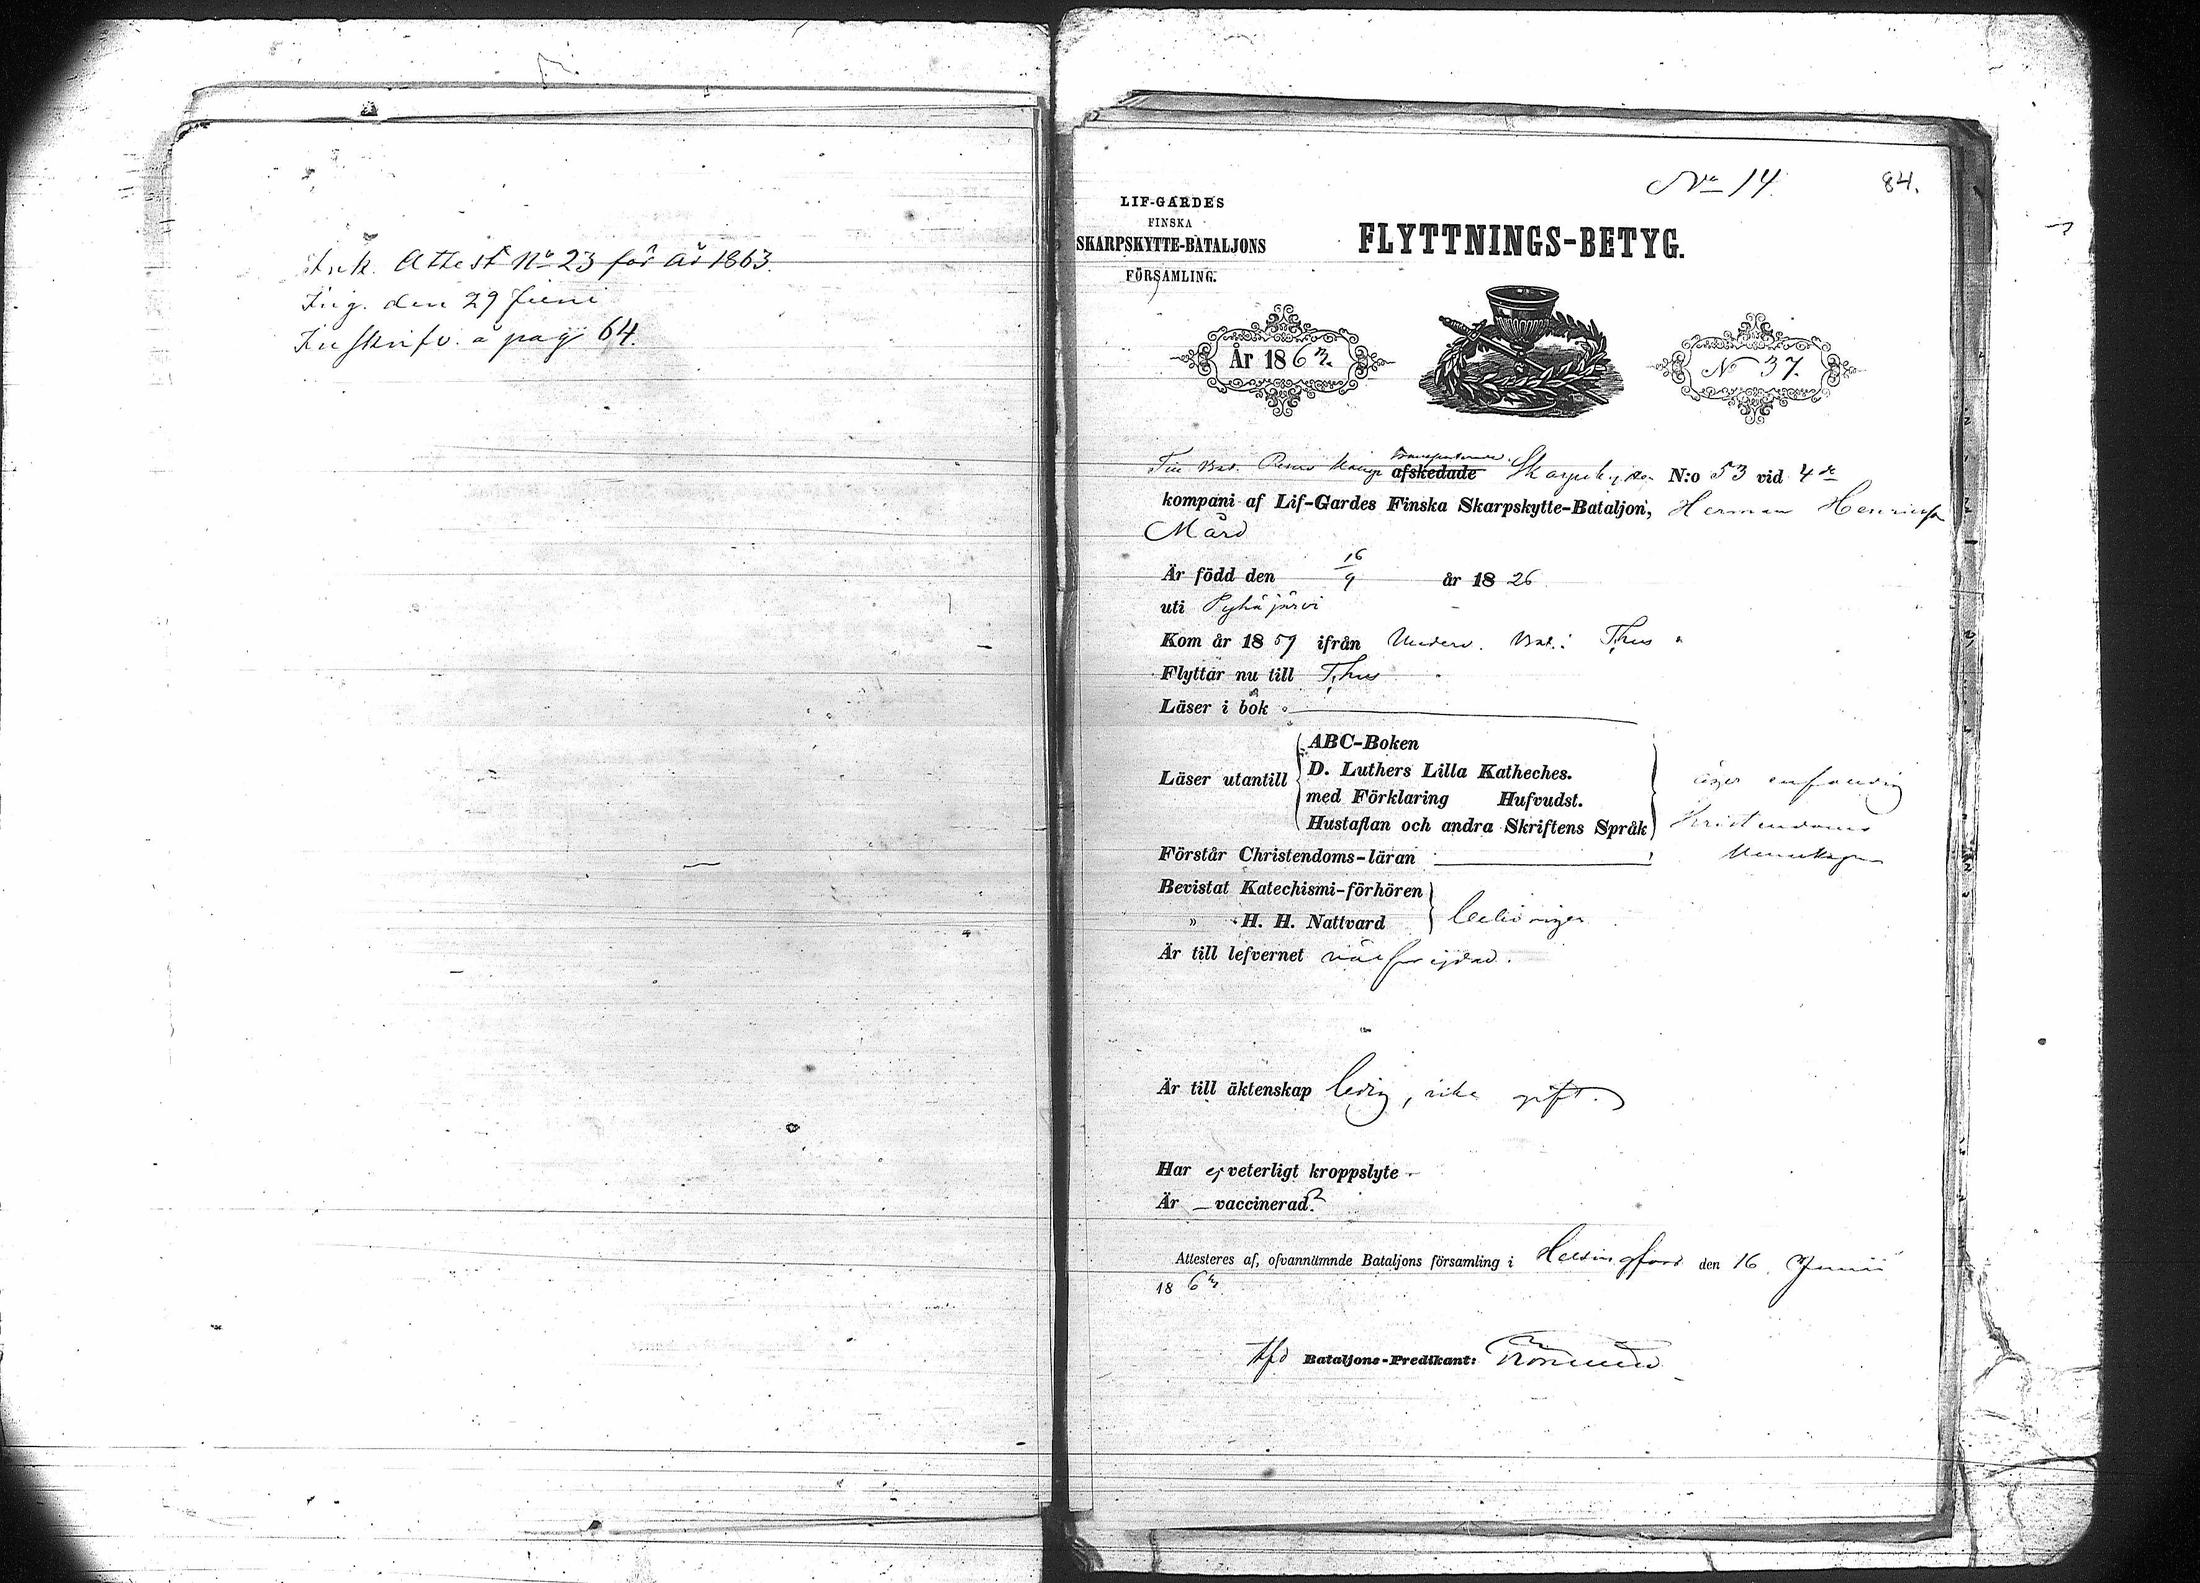 Ank. Attest No 23 för år 1863.
Ing. den 29 Juni
Inskrifv. å pag 64.
No 14.
84.
LIF-GARDES
FINSKA
SKARPSKYTTE-BATALJONS
FÖRSAMLING.
FLYTTNINGS-BETYG.
År 1863.
No 37.
afskedade Skarpskytten N:o 53 vid 4de
kompani af Lif-Gardes Finska Skarpskytte-Bataljon, Herman Henricsson
Mård
Är född den 16/9 år 1826
uti Pyhäjärvi
Kom år 1857 ifrån Underv. Bat. i Thus
Flyttar nu till Thus
Läser i bok
Läser utantill
ABC-Boken
D. Luthers Lilla Katheches.
med Förklaring Hufvudst.
Hustaflan och andra Skriftens Språk
äger enfaldig
Kristendoms
Kunskap
Förstår Christendoms-läran
Bevistat Katechismi-förhören
" H. H. Nattvard
behörigen
Är till lefvernet väl frejdad.
Är till äktenskap ledig, icke gift.
Har ej veterligt kroppslyte
Är vaccinerad?
Attesteres af, ofvannämnde Bataljons församling i Helsingfors den 16 Junii
1863.
Bataljons-Predikant: